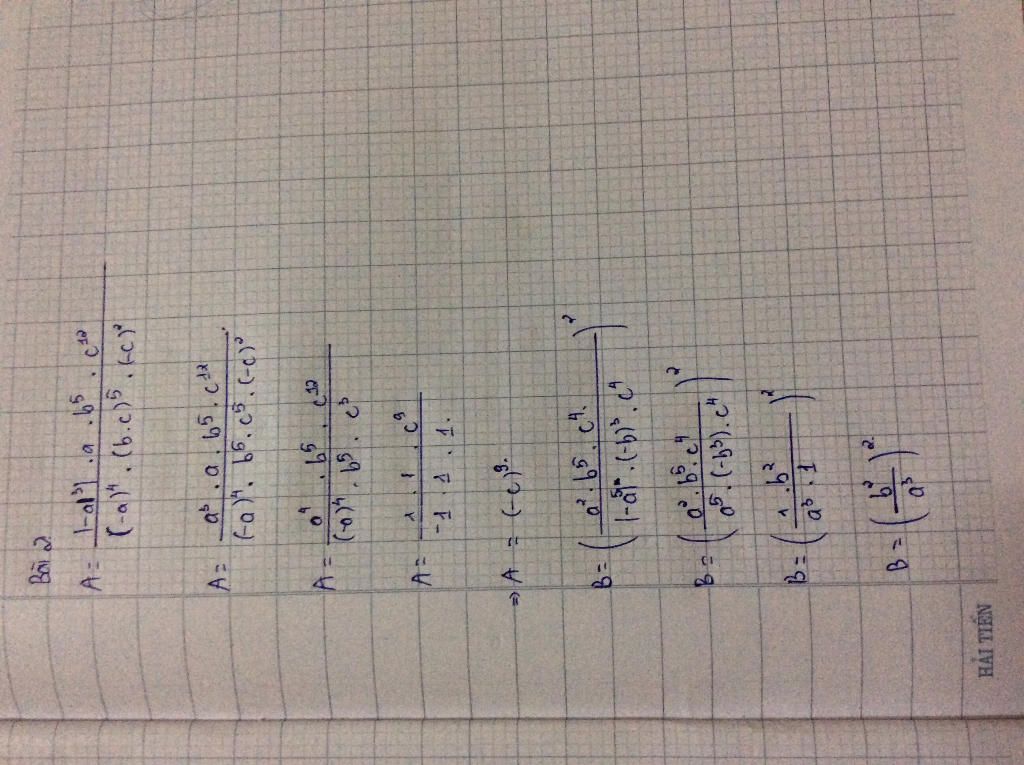 Bài 2
A = \frac{|-a^3| . a . b^5 . c^{12}}{(-a)^4 . (b.c)^5 . (-c)^2}
A = \frac{a^3 . a . b^5 . c^{12}}{(-a)^4 . b^5 . c^5 . (-c)^2}
A = \frac{a^4 . b^5 . c^{12}}{(-a)^4 . b^5 . c^3}
A = \frac{1 . 1 . c^9}{-1 . 1 . 1.}
=> A = (-c)^9.
B = \left(\frac{a^2 . b^5 . c^4.}{|-a^5| . (-b)^3 . c^4}\right)^2
B = \left(\frac{a^2 . b^5 . c^4}{a^5 . (-b^3) . c^4}\right)^2
B = \left(\frac{1 . b^2}{a^3 . 1}\right)^2
B = \left(\frac{b^2}{a^3}\right)^2.
HẢI TIẾN